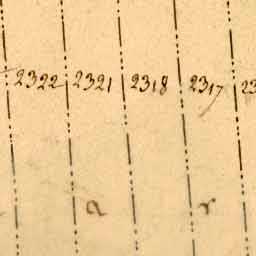 2322 2321 2318 2317 23
a r